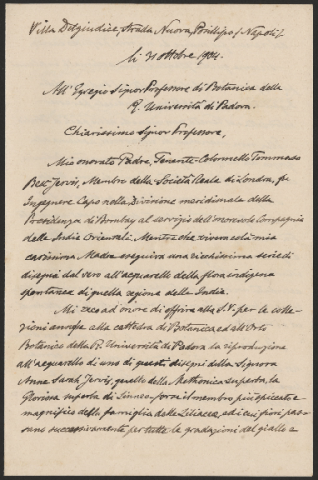 Villa Delgiudice, Strada Nuova, Posillipo (Napoli).
li 31 ottobre 1904.
All' Egregio Signor Professore di Botanica della
R. Università di Padova.
Chiarissimo Signor Professore,
Mio onorato Padre, Tenente-Colonnello Tommaso
Best Jervis, Membro della Società Reale di Londra, fu
Ingegnere Capo nella Divisione meridionale della
Presidenza di Bombay al servizio dell'onorevole Compagnia
delle Indie Orientali. Mentre che viveva colà mia
carissima Madre eseguiva una ricchissima serie di
disegni dal vero all'acquarello della flora indigena
spontanea di quella regione delle Indie.
Mi reco ad onore di offrire alla S.V. per le colle-
zioni annesse alla cattedra di Botanica ed all'Orto
Botanico della R. Università di Padova la riproduzione
all'acquarello di uno di questi disegni della Signora
Anna Sarah Jervis, quello della Methonica superba, la
Gloriosa superba di Linneo, forse il membro più spiccato e
magnifico della famiglia delle Liliacee, ed i cui fiori pas-
sano successivamente per tutte le gradazioni del giallo e